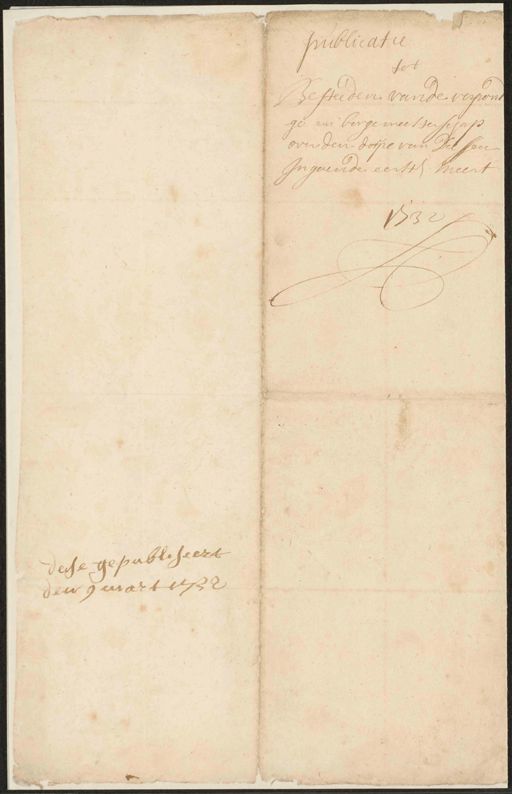 publicatie
tot
Besteeden vande verpond
ge en borgemeesterschap
over den dorpe van
Ingaende eerste meert
1732
dese gepubliseert
den 9 mart 1732